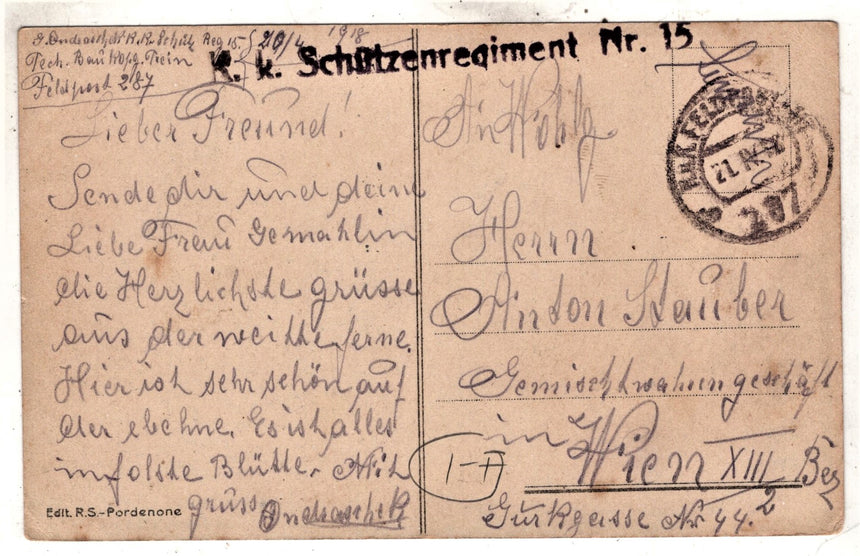 J. Ondraschek K.K. Schütz. Reg 15. 20/4 1918
Tech. Baukopg. Train
Feldpost 287
K. k. Schützenregiment Nr. 15
K.u.K. FELDPOSTAMT
21. IV.
287
Lieber Freund!
Sende dir und deine
Liebe Frau Gemahlin
die Herzlichste grüsse
aus der weitte ferne.
Hier ist sehr schön auf
der ebehne. Es ist alles
in folste Blütte. Mit
gruss Ondraschek
Edit. R.S.-Pordenone
An Wohlg
Herrn
Anton Stauber
Gemischtwahrungeschäft
in Wien XIII Bez
Gurkgasse Nr 44.2
I-II